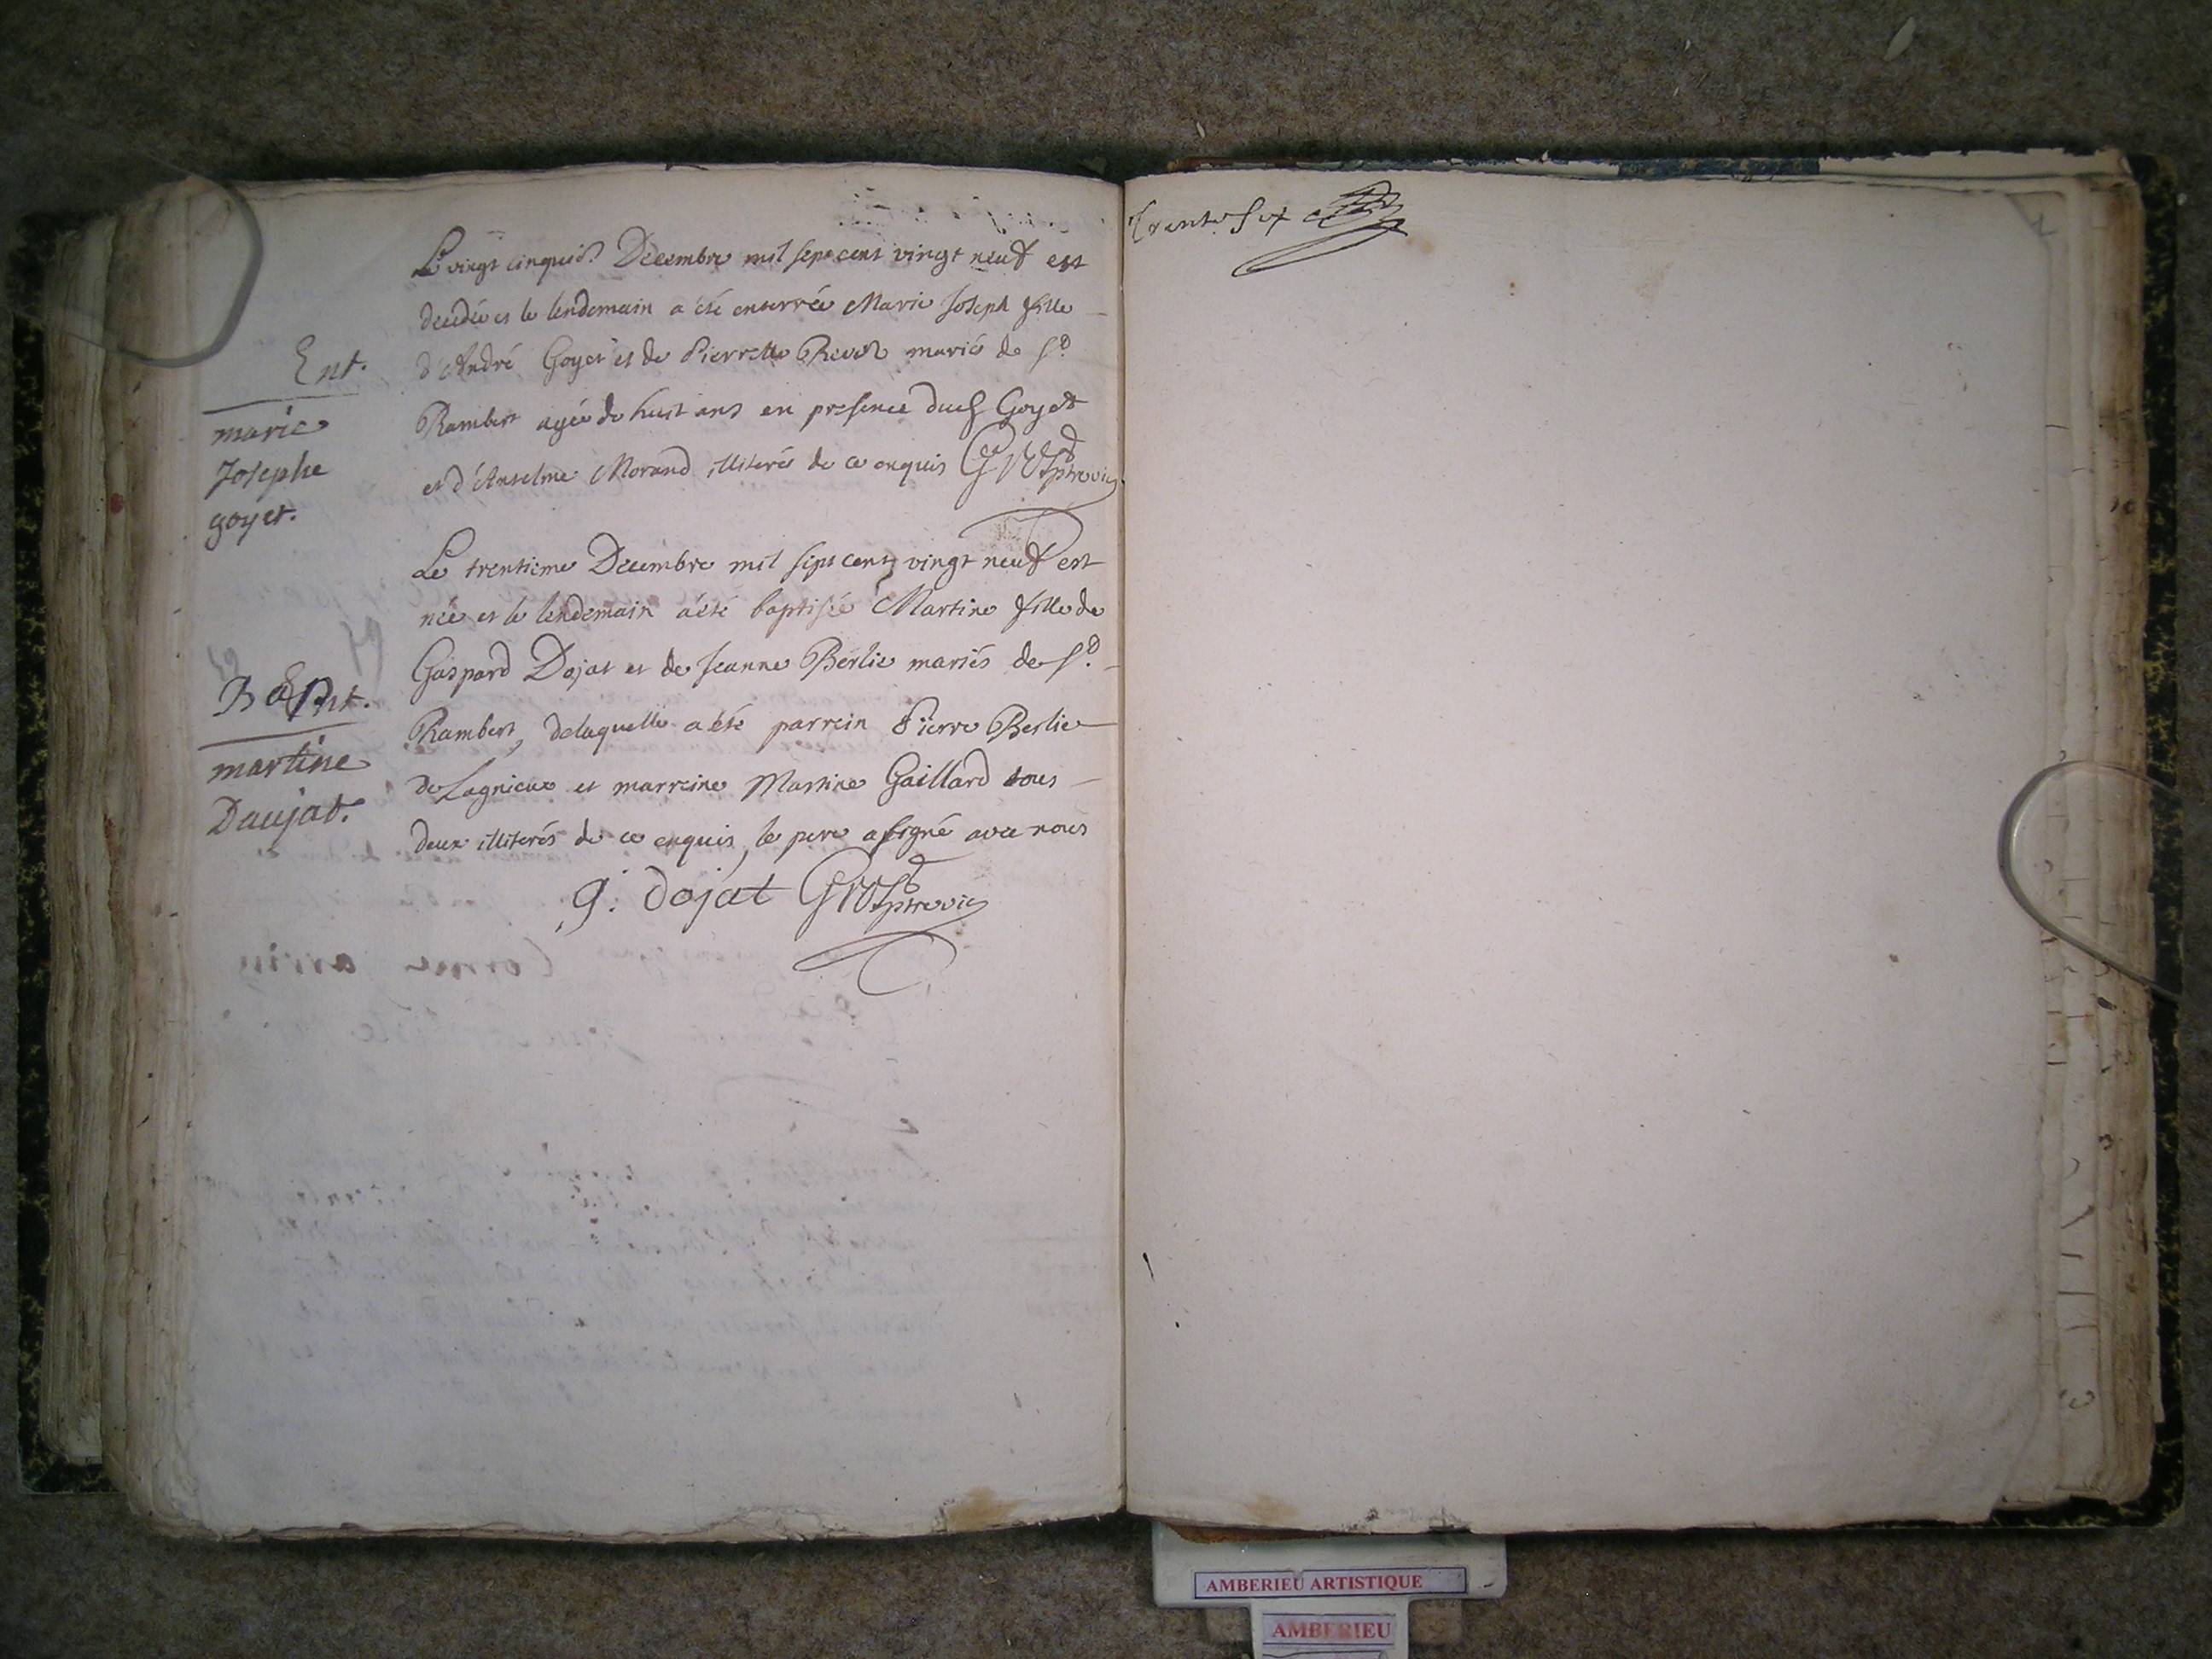 Ent.
marie
Josephe
goyet.
Le vingt cinquie. Décembre mil sept cent vingt neuf est
decedée et le lendemain a été enterrée Marie Joseph fille
d'André Goyet et de Pierrette Revol mariés de St.
Rambert agée de huit ans en presence dud Goyet
et d'Anselme Morand illiterés de ce enquis
Bapt.
martine
Daujat.
Le trentieme Decembre mil sept cent vingt neuf est
née et le lendemain a été baptisée Martine fille de
Gaspard Dojat et de Jeanne Berlie mariés de St.
Rambert, delaquelle a été parrein Pierre Berlie
de Lagnieux et marreine Martine Gaillard tous
deux illiterés de ce enquis, le pere a signé avec nous
g: dojat
trente six
AMBERIEU ARTISTIQUE
AMBERIEU